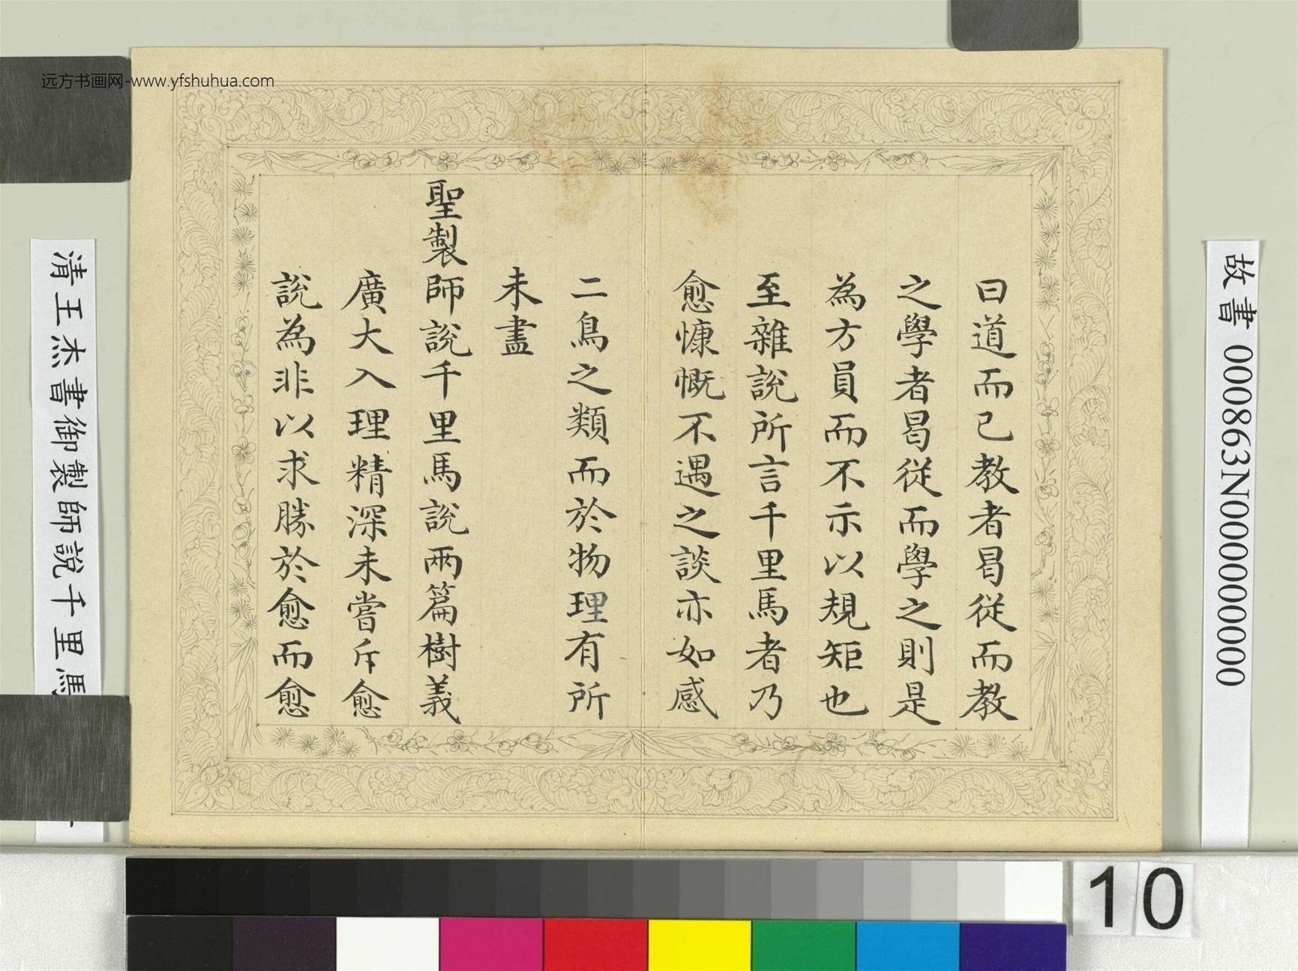 远方书画网-www.yfshuhua.com
曰道而已教者曷從而教
之學者曷從而學之則是
為方員而不示以規矩也
至雜說所言千里馬者乃
愈慷慨不遇之談亦如感
二鳥之類而於物理有所
未盡
聖製師說千里馬說兩篇樹義
廣大入理精深未嘗斥愈
說為非以求勝於愈而愈
故書 000863N000000000
清王杰書御製師說千里馬
10